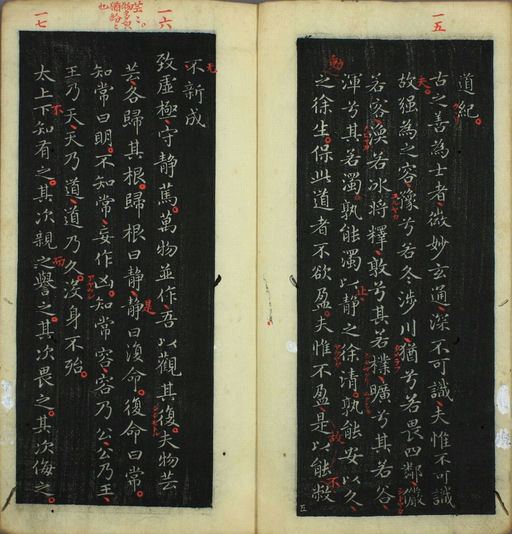 一五
道紀
古之善為士者微妙玄通深不可識夫惟不可識
故强為之容豫兮若冬涉川猶兮若畏四鄰儼
若客渙若冰將釋敦兮其若樸曠兮其若谷
渾兮其若濁孰能濁以靜之徐清孰能安以久
之徐生保此道者不欲盈夫惟不盈是以能敝
不新成
一六
致虛極守靜篤萬物並作吾以觀其復夫物芸
芸各歸其根歸根曰靜靜曰復命復命曰常
知常曰明不知常妄作凶知常容容乃公公乃王
王乃天天乃道道乃久沒身不殆
一七
太上下知有之其次親之譽之其次畏之其次侮之